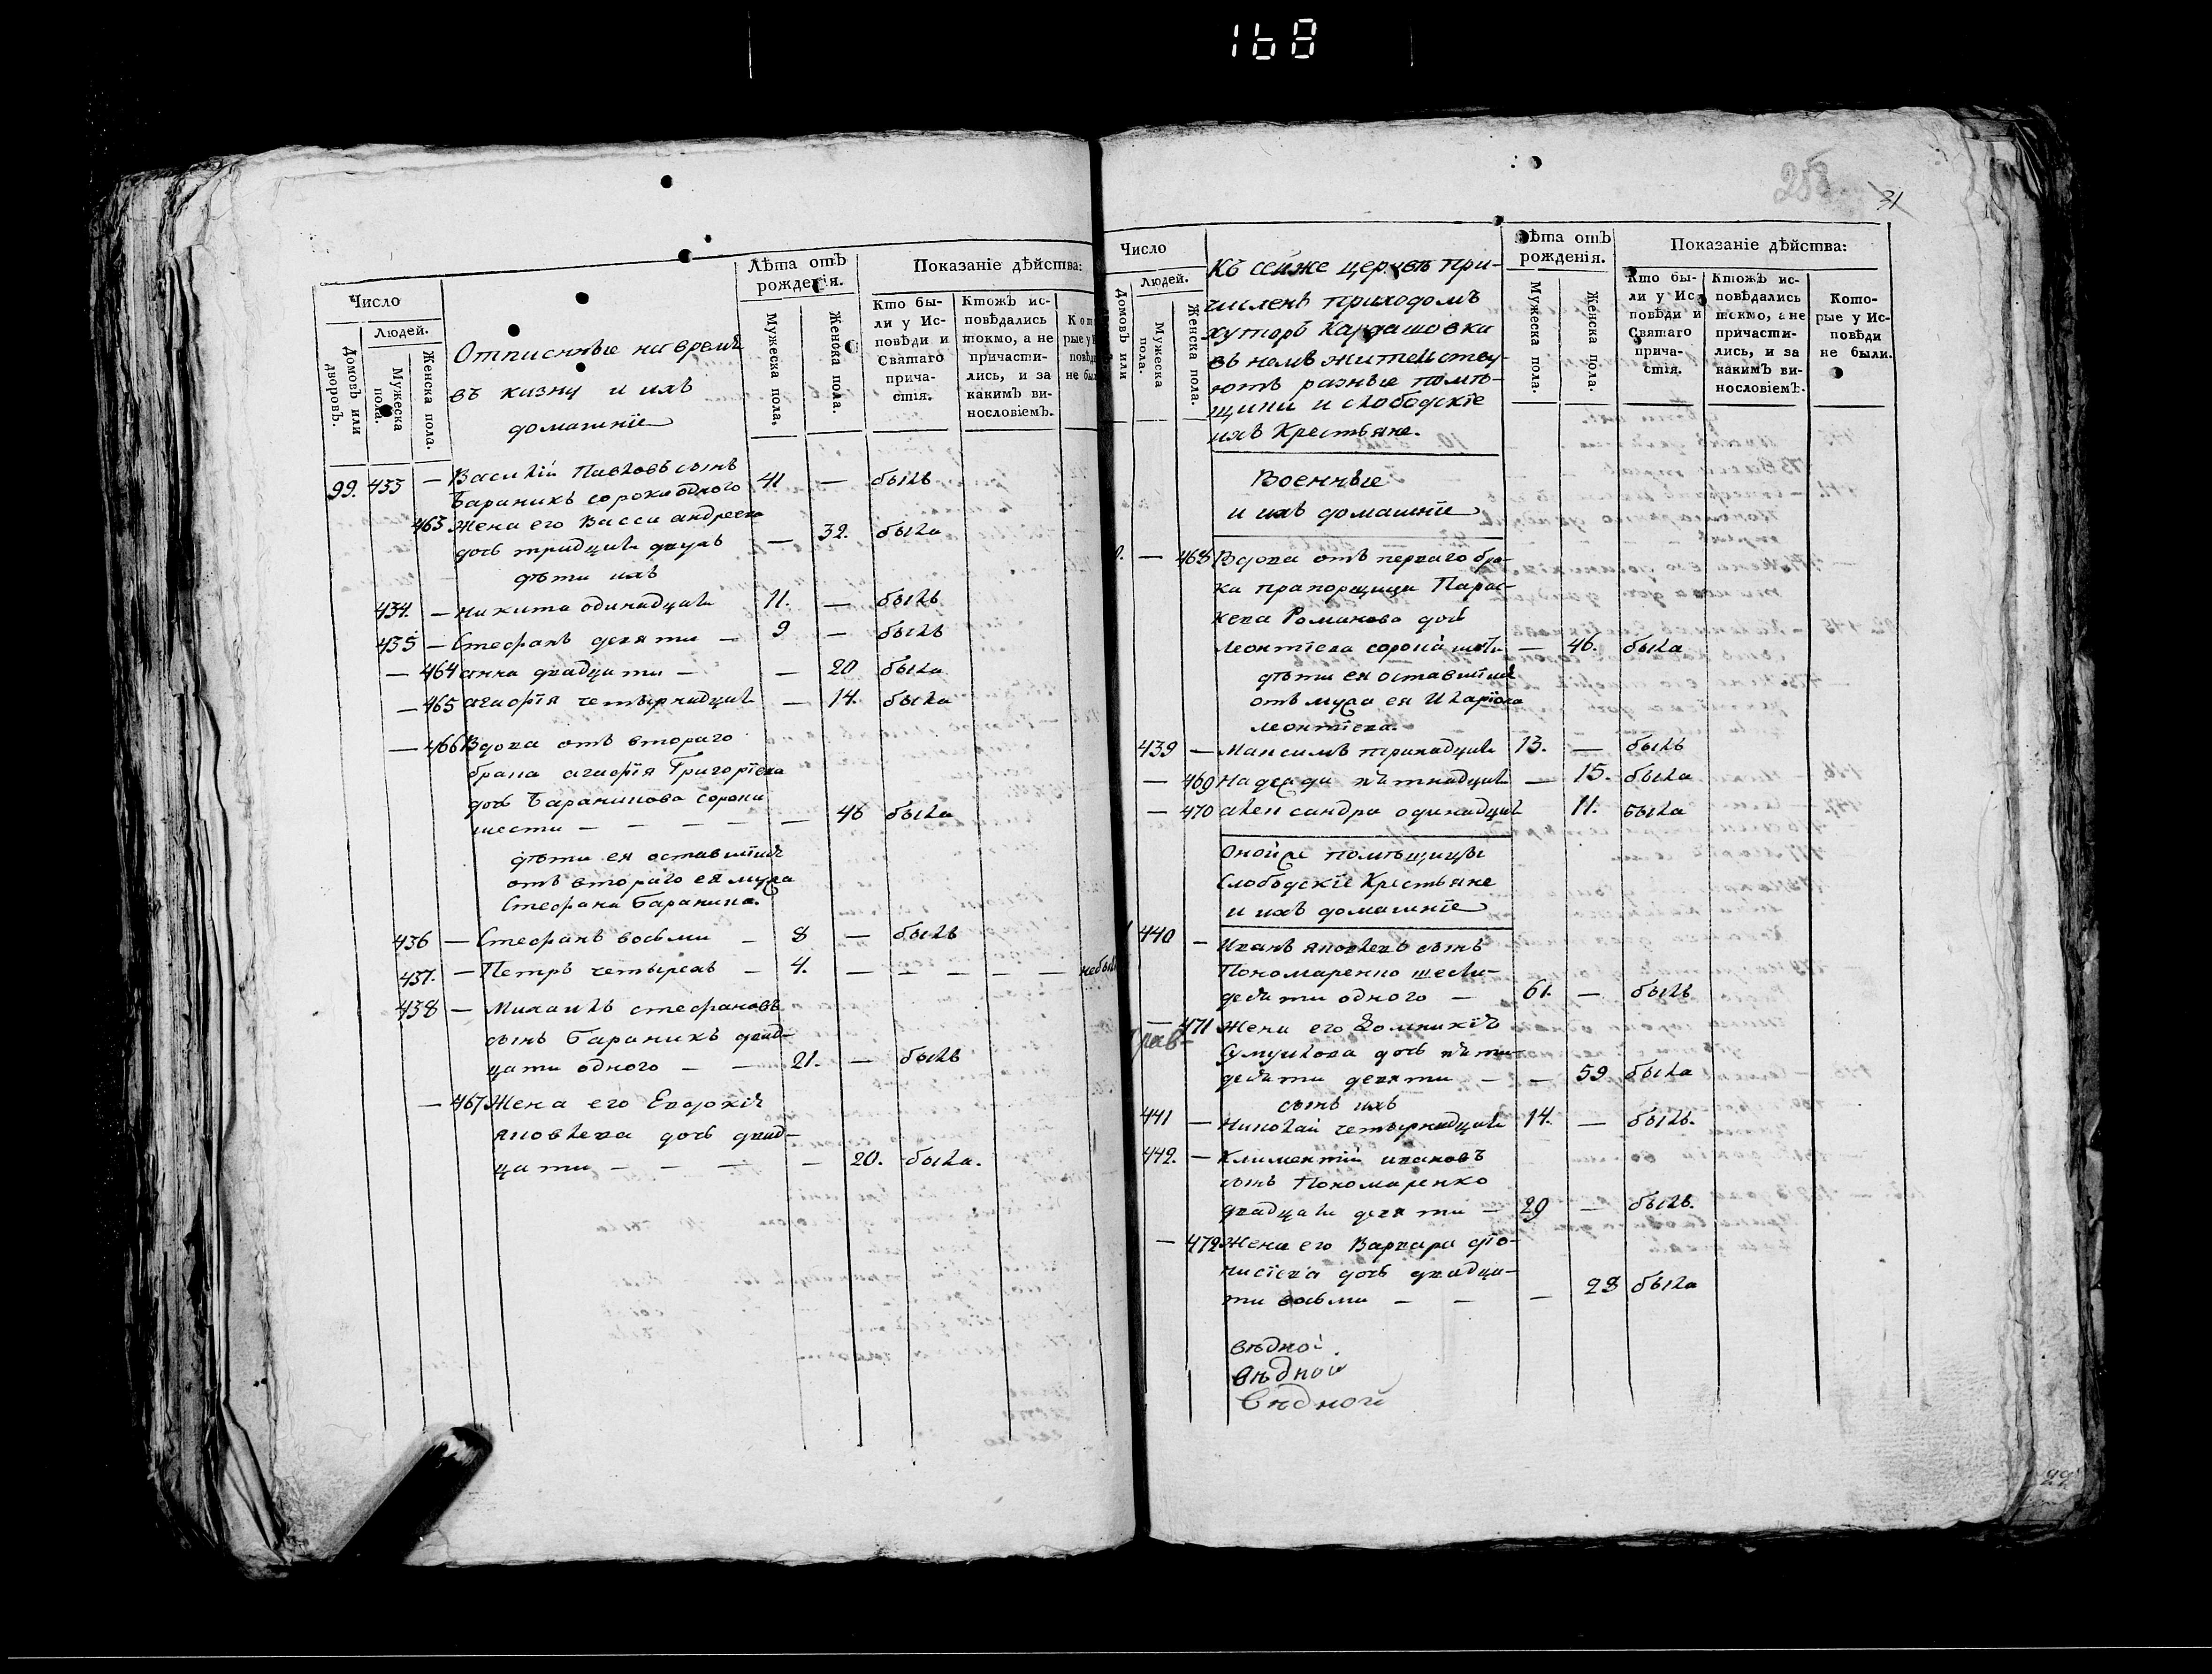 168
Число
Людей.
Домовъ или дворовъ.
Мужеска пола.
Женска пола.
Отписнные на время
въ казну и ихъ
домашнїе
Лѣта отъ
рожденїя.
Мужеска пола.
Женска пола.
Показанїе дѣйства:
Кто бы-
ли у Ис-
повѣди и
Святаго
прича-
стїя.
Ктожъ ис-
повѣдались
токмо, а не
причасти-
лись, и за
какимъ ви-
нословїемъ.
99. 433 — Василїй Павловъ сынъ
Бараникъ сорока одного 41 — былъ
463 Жена его Васса андреева
дочь тридцати двухъ — 32. была
дѣти ихъ
434. — никита одинадцати 11. — былъ
435 — Стефанъ девяти — 9 — былъ
— 464 анна двадцати — — 20 была
— 465 агафїя четырнадцати — 14. была
— 466 Вдова отъ втораго
брака агафїя Григорїева
дочь Бараникова сорока
шести — — — — — 46 была
дѣти ея оставшїя
отъ втораго ея мужа
Стефана Бараника.
436 — Стефанъ восьми — 8 — былъ
437. — Петръ четырехъ — 4. — — — — — небылъ
438 — Михаилъ стефановъ
сынъ Бараникъ двад-
цати одного — — 21. — былъ
— 467 Жена его Евдокїя
яковлева дочь двад-
цати — — — — 20. была.
258
31
Число
Людей.
Домовъ или
Мужеска пола.
Женска пола.
Къ сейже церквѣ при-
численъ приходомъ
хуторъ Кардашовка
въ немъ жительству-
ютъ разные помѣ-
щики и слободскїе
ихъ Крестьяне.
Лѣта отъ
рожденїя.
Мужеска пола.
Женска пола.
Показанїе дѣйства:
Кто бы-
ли у Ис-
повѣди и
Святаго
прича-
стїя.
Ктожъ ис-
повѣдались
токмо, а не
причасти-
лись, и за
какимъ ви-
нословїемъ.
Кото-
рые у Ис-
повѣди
не были.
Военные
и ихъ домашнїе
— 468 Вдова отъ перваго бра-
ка прапорщица Парас-
кева Романова дочь
леонтїева сорока шести — 46. была
дѣти ея оставшїя
отъ мужа ея Иларїона
леонтїева.
439 — Максимъ тринадцати 13. — былъ
— 469 Надежда пятнадцати — 15. была
— 470 александра одинадцати 11. была
Онойже помѣщицы
Слободскїе Крестьяне
и ихъ домашнїе
440 — Иванъ яковлевъ сынъ
Пономаренко шести-
десяти одного — 61. — былъ
— 471 Жена его Домникїя
Самуилова дочь пяти-
десяти девяти — — 59 была
сынъ ихъ
441 — Николай четырнадцати 14. — былъ.
442. — Климентїй ивановъ
сынъ Пономаренко
двадцати девяти — 29 — былъ.
— 472 Жена его Варвара фїо-
нисїева дочь двадца-
ти восьми — — — 28 была
вѣдной
вѣдной
вѣдной